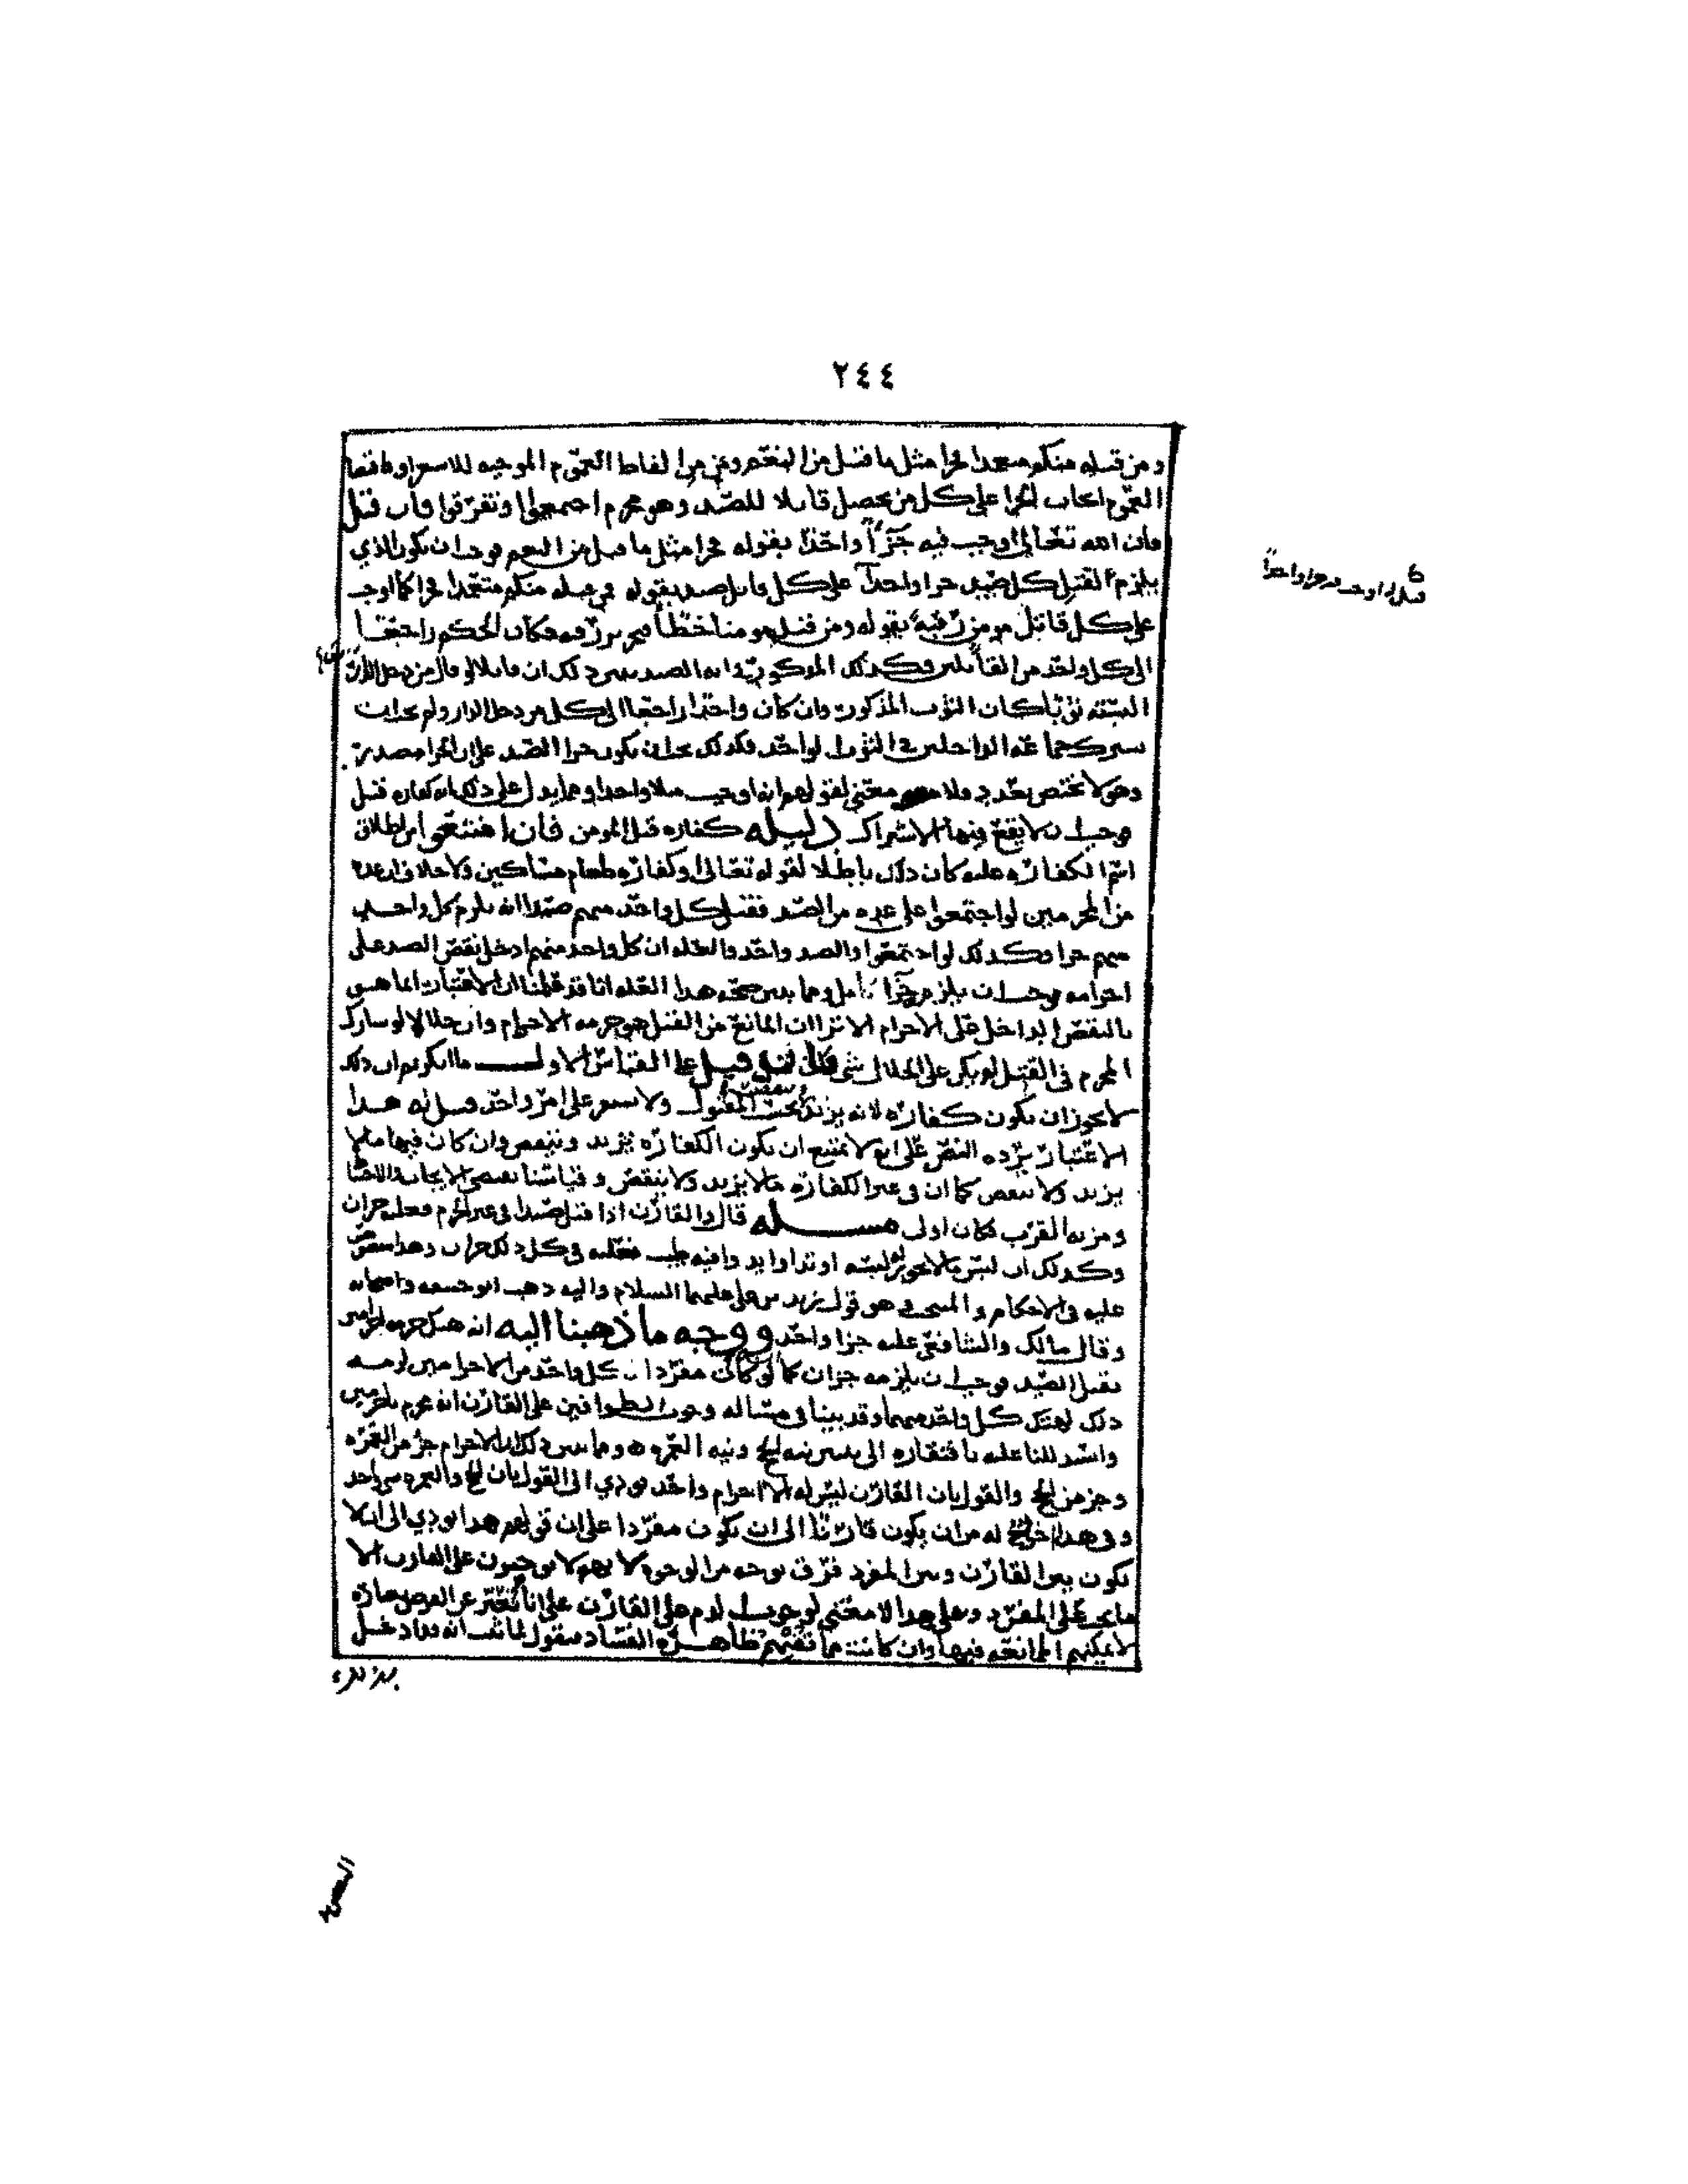 ٢٤٤
ومن قتله منكم متعمدا فجزا مثل ما قتل من النعم ومن من الفاظ العموم الموجبه للاستغراق فاقتضا
العموم ايجاب الجزا على كل من يحصل قاتلا للصيد وهو محرم اجتمعوا او تفرقوا فان قيل
فان الله تعالى اوجب فيه جزآ واحدا بقوله فجزا مثل ما قتل من النعم فوجب ان يكون الذي
يلزم القتل كل صيد جزا واحدا على كل قاتل صيد بقوله فمن قتله منكم متعمدا فجزا كما اوجب
على كل قاتل مومن رقبة بقوله ومن قتل مومنا خطأ فتحرير رقبه فكان الحكم راجعا
الى كل واحد من القاتلين وكذلك المذكور في ايه الصيد يبين ذلك ان قايلا لو قال من دخل الدار
البسته ثوبا كان الثوب المذكور وان كان واحدا راجعا الى كل من دخل الدار ولم يجب ان
يشترك جماعه الداخلين في الثوب الواحد فكذلك يجب ان يكون جزا الصيد على ان الجزا مصدر
وهو لا يختص بعدد فلا معنى لقولهم انه اوجب مثلا واحدا ومما يدل على ذلك انه كفاره قتل
فوجب ان لا يقع فيها الاشتراك دليله كفاره قتل المومن فان امتنعوا من اطلاق
اسم الكفاره عليه كان ذلك باطلا لقوله تعالى او كفاره طعام مساكين ولا خلاف ان عده
من المحرمين لو اجتمعوا على عده من الصيد فقتل كل واحد منهم صيدا انه يلزم كل واحد
منهم جزا وكذلك لو اجتمعوا والصيد واحد والعله ان كل واحد منهم ادخل نقص الصيد على
احرامه فوجب ان يلزمه جزآ كامل ومما يبين صحه هذا العله انا قد علمنا ان الاعتبار انما هو
بالنقص الداخل على الاحرام الا ترا ان المانع من القتل هو حرمه الاحرام وان حلالا لو شارك
المحرم في القتل لم يكن على الحلال شي فان قيل على القياس الاول ما انكرتم ان ذلك
لا يجوز ان يكون كفاره لانه يزيد وينقص بحسب المقتول ولا يستمر على امر واحد قيل له هذا
الاعتبار يرده النص على انه لا يمتنع ان يكون الكفاره تزيد وتنقص وان كان فيها ما لا
يزيد ولا ينقص كما ان في غير الكفاره ما لا يزيد ولا ينقص وقياسنا يقتضي الايجاب والاحتياط
ومزيه القرب فكان اولى مسـله قال والقارن اذا قتل صيدا في غير الحرم فعليه جزان
وكذلك ان لبس ما لا يجوز له لبسه او تداوا بدوا فيه طيب فعليه في كل ذلك جزان وهذا منصوص
عليه في الاحكام والمنتخب وهو قول زيد بن علي عليهما السلام واليه ذهب ابو حنيفه واصحابه
وقال مالك والشافعي عليه جزا واحد ووجه ما ذهبنا اليه انه هتك حرمه احرامين
بقتل الصيد فوجب ان يلزمه جزان كما لو كان مفردا كل واحد من الاحرامين لزمه
ذلك لهتك كل واحد منهما وقد بينا في مساله وجوب الطوافين على القارن انه محرم باحرامين
واستدللنا عليه بافتقاره الى نيتين نيه الحج ونيه العمره ومما يبين ذلك ان الاحرام جز من العمره
وجز من الحج والقول بان القارن ليس له الا احرام واحد يودي الى القول بان الحج والعمره شي واحد
وفي هذا اخراج له من ان يكون قارنا الى ان يكون مفردا على ان قولهم هذا يودي الى ان لا
يكون بين القارن وبين المفرد فرق بوجه من الوجوه لانهم لا يوجبون على القارن الا
ما يجب على المفرد وعلى هذا لا معنى لوجوب الدم على القارن على انا نعبر عن الغرض بعباره
لا يمكنهم الممانعه فيها وان كانت ممانعتهم ظاهره الفساد فنقول لما ثبت انه قد ادخل